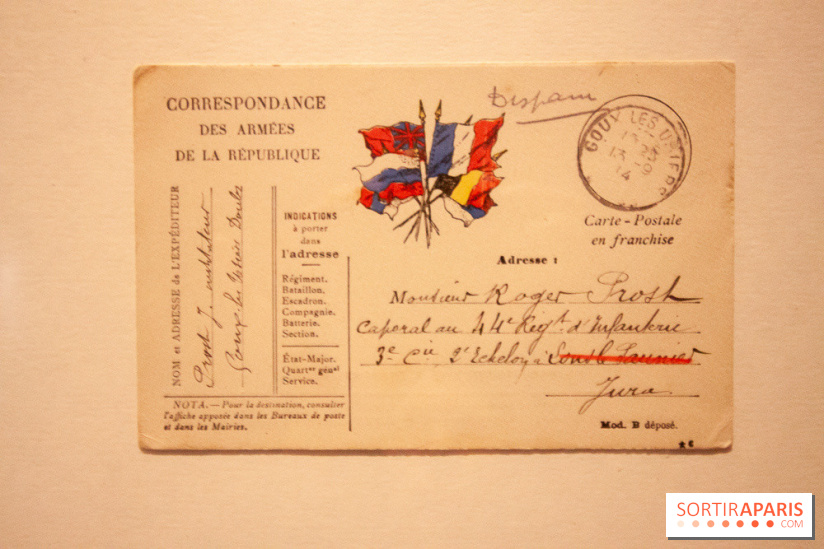 CORRESPONDANCE
DES ARMÉES
DE LA RÉPUBLIQUE
Disparu
GOUX LES USIERS
13 -9
14
Carte-Postale
en franchise
NOM et ADRESSE de L'EXPÉDITEUR
Prost J. instituteur
Goux les
INDICATIONS
à porter
dans
l'adresse
Régiment.
Bataillon.
Escadron.
Compagnie.
Batterie.
Section.
État-Major.
Quartᵉʳ génᵃˡ
Service.
NOTA. — Pour la destination, consulter
l'affiche apposée dans les Bureaux de poste
et dans les Mairies.
Adresse :
Monsieur Roger Prost
Caporal au 44e Regt d'Infanterie
3e Cie 2e Echelon à Lons le Saunier
Jura
Mod. B déposé.
SORTIRAPARIS
.COM